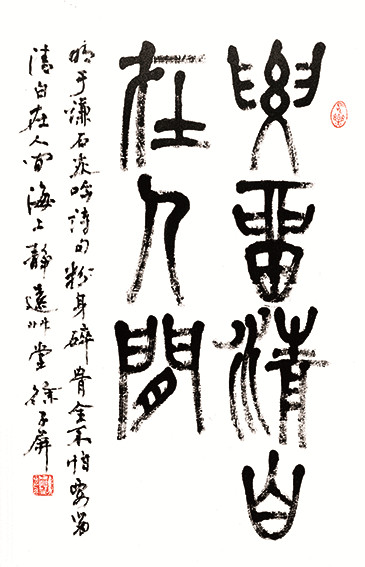 要留清白
在人間
明于谦石灰吟诗句粉身碎骨全不怕要留
清白在人间海上静遠艸堂徐子屏